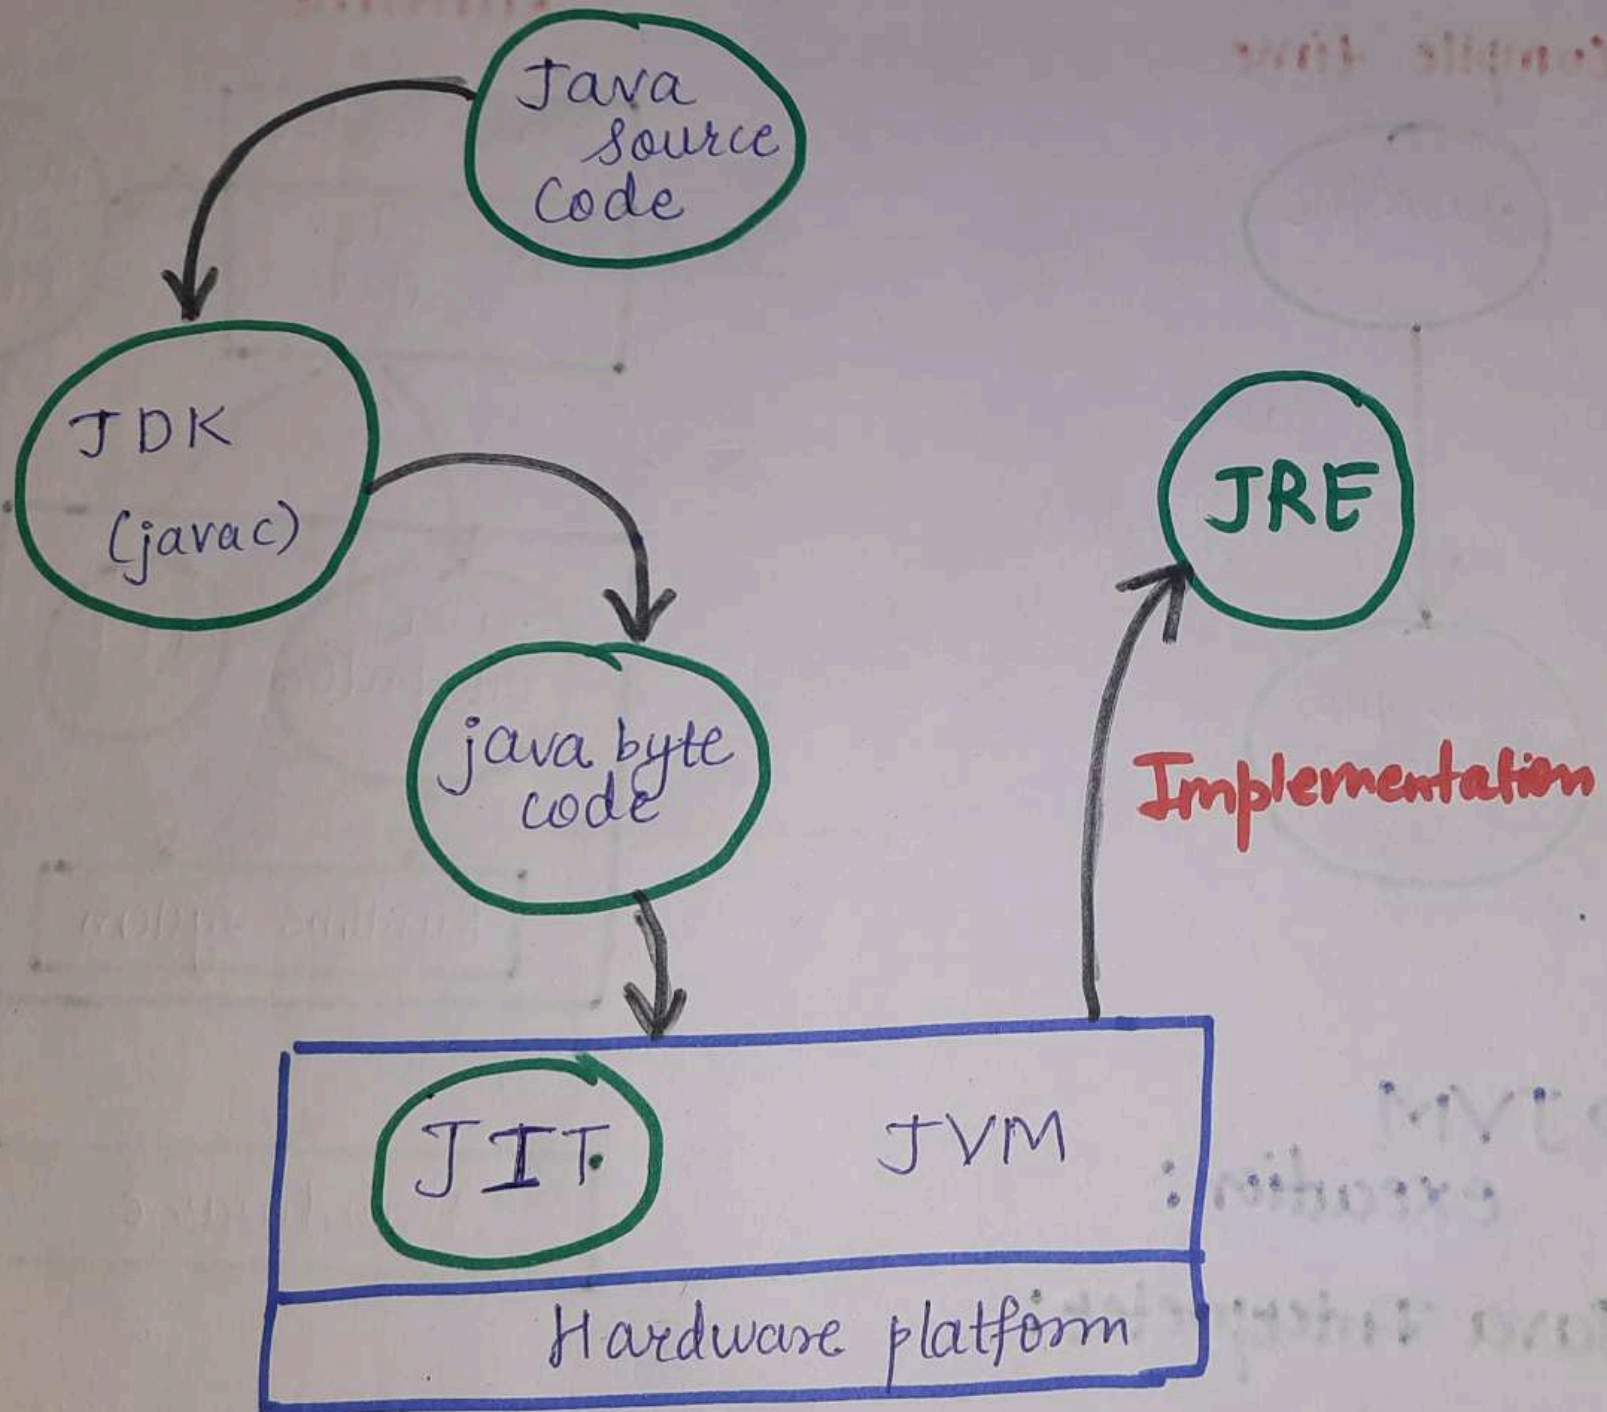 Java
source
Code
JDK
(javac)
JRE
java byte
code
Implementation
JIT
JVM
Hardware platform